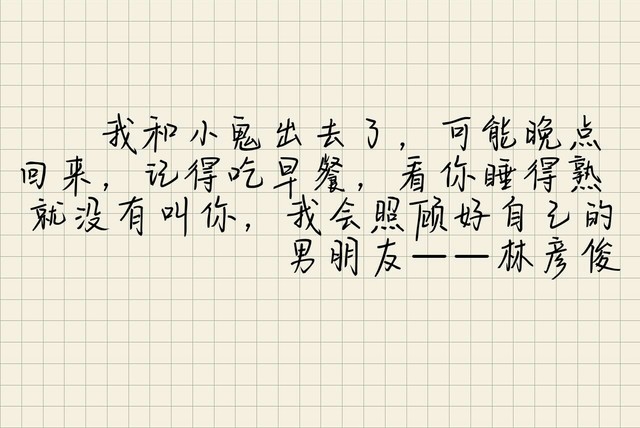 我和小鬼出去了，可能晚点
回来，记得吃早餐，看你睡得熟
就没有叫你，我会照顾好自己的
男朋友——林彦俊